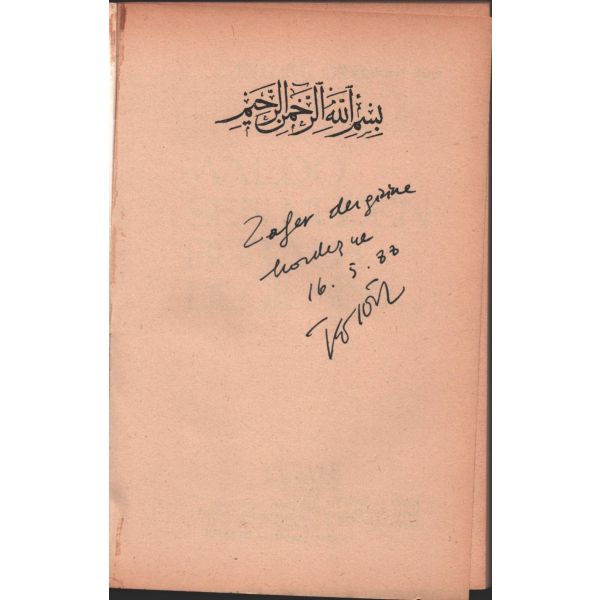 بِسْمِ اللَّهِ الرَّحْمَنِ الرَّحِيمِ
Zafer dergisine
kardeşçe
16. 5. 83